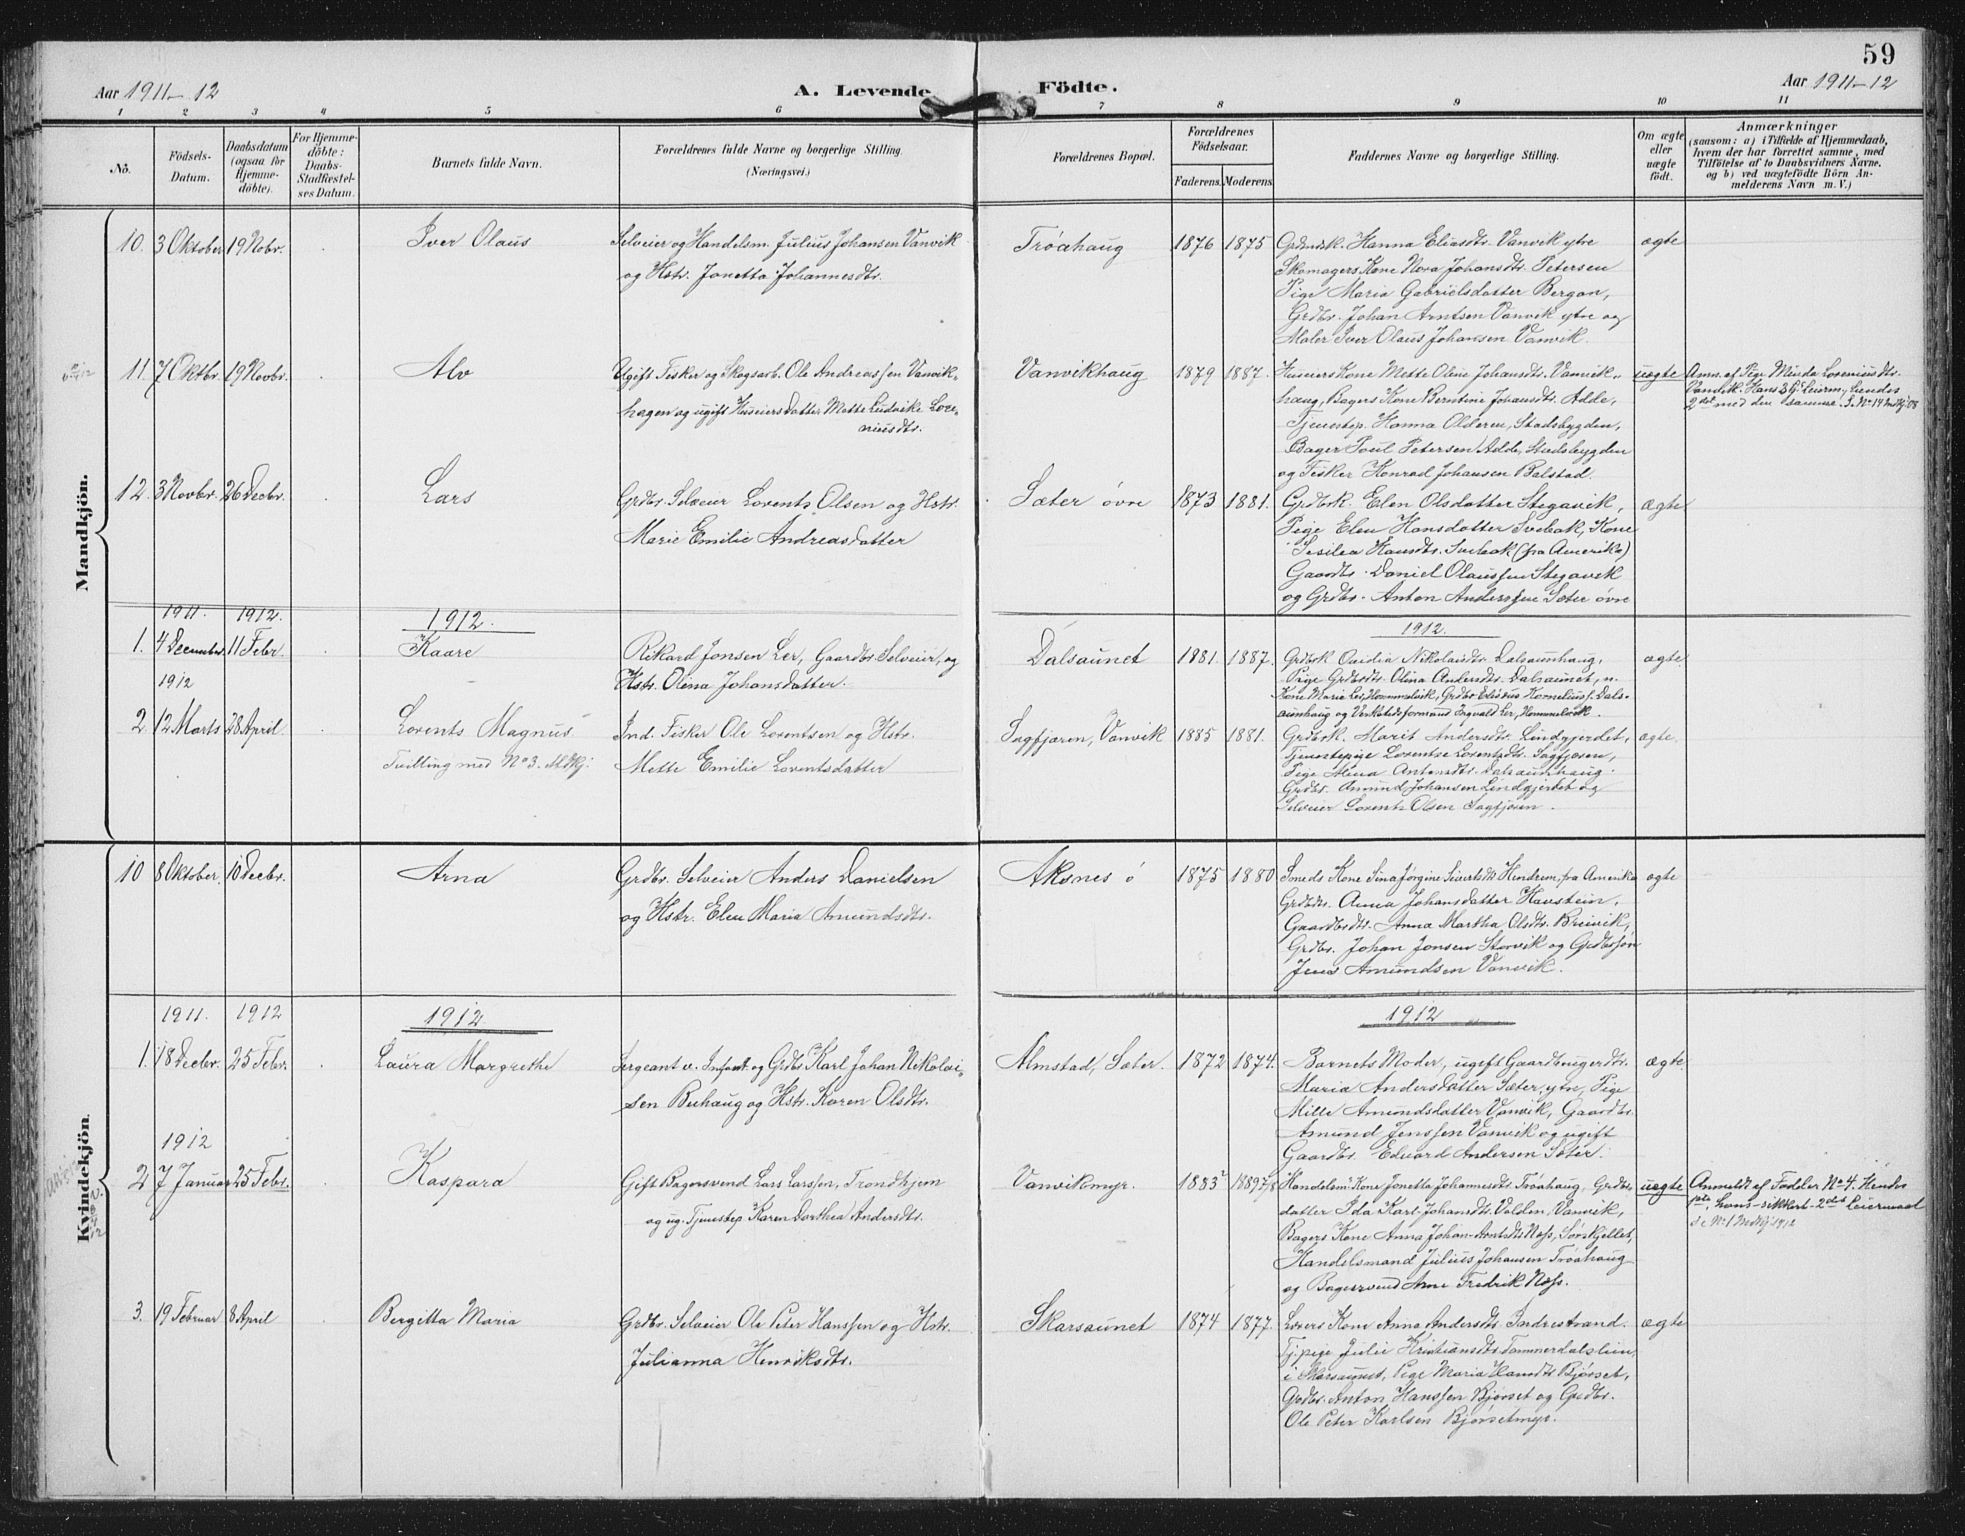 59
Aar 1911-12
A. Levende Födte.
Aar 1911-12
1 2 3 4 5 6 7 8 9 10 11
No.
Födsels-Datum.
Daabsdatum (ogsaa för Hjemme-döbte).
For Hjemme-döbte: Daabs-Stadfæstel-ses Datum.
Barnets fulde Navn.
Forældrenes fulde Navne og borgerlige Stilling.
(Næringsvei.)
Forældrenes Bopæl.
Forældrenes Födselsaar.
Faderens. Moderens.
Faddernes Navne og borgerlige Stilling.
Om ægte eller uægte födt.
Anmærkninger
(saasom: a) i Tilfælde af Hjemmedaab, hvem der har forrettet samme, med Tilföielse af to Daabsvidners Navne, og b) ved uægtefödte Börn An-melderens Navn m. V.)
Mandkjön.
10. 3 Oktober 19 Novbr. Iver Olaus
Selveier og Handelsm. Julius Johansen Vanvik
og Hstr. Jonetta Johannesdtr.
Tróahaug 1876 1875
Hanna Eliasdtr. Vanvik ytre
Skomagers Kone Nora Johansdtr. Petersen
Pige Maria Gabrielsdatter Bergan,
Grdbr. Johan Arntsen Vanvik ytre og
Maler Iver Olaus Johansen Vanvik.
ægte
11. 7 Oktbr. 19 Novbr. Alv
Ugift Fisker og Skogsarb. Ole Andreassen Vanvik-
hagen og ugift Husmersdatter Mette Ludvikke Lore-
niusdtr.
Vanvikhaug 1879 1887.
Kone Mette Oline Johansdtr. Vanvik-
haug, Bagers Kone Berntine Johansdtr. Adde,
Tjenestep. Hanna Olderen, Stadsbygden,
Bager Poul Petersen Adde, Stadsbygden
og Fisker Konrad Johansen Balstad.
uægte
Anm. af Pige Minda Loreniusdtr.
Vanvik. Hans 3die Leierm., hendes
2det med den samme. S. No 14 Mdkj. 08
12. 3 Novbr. 26 Decbr. Lars
Grdbr. Selveier Lorents Olsen og Hstr.
Marie Emilie Andreasdatter
Sæter óvre 1873 1881.
Grdbrk. Elen Olsdatter Stegavik,
Pige Elen Hansdatter Svebak, Kone
Sesilea Hansdtr. Svebak (fra Amerika)
Gaardbr. Daniel Olaussen Stegavik
og Grdbr. Anton Anderssen Sæter óvre
ægte
1911. 1912. 1912. 1912.
1. 4 December 11 Febr. Kaare
Rikard Jonsen Ler, Gaardbr. Selveier, og
Hstr. Olina Johansdatter.
Dalsaunet 1881. 1887.
Grdbrk Nikolaisdtr. Dalsaunhaug,
Pige Grdbrdtr. Olina Andersdtr. Dalsaunet, u.
Kone Marie Ler, Hommelvik, Grdbr. Kornelius f. Dals-
aunhaug og Verkstedsformand Ingvald Ler, Hommelvik.
ægte
1912
2. 12 Marts 28 April. Lorents Magnus
Tvilling med No 3. Mdkj.
Ind. Fisker Ole Lorentsen og Hstr.
Mette Emilie Lorentsdatter
Sagfjæren, Vanvik 1885 1881.
Grdbrk. Marit Andersdtr. Lindgjerdet,
Tjenestepige Lorentse Lorentsdtr. Sagfjæren,
Pige Mina Antonsdtr. Dalsaunhaug.
Grdbr. Amund Johansen Lindgjerdet og
Selveier Lorents Olsen Sagfjæren.
ægte.
Kvindekjön.
10 8 Oktober. 10 Decbr. Arna
Grdbr. Selveier Anders Danielsen
og Hstr. Elen Maria Amundsdtr.
Aksnes ó 1875 1880
Smeds Kone Sina Jørgine Sivertsdtr Hindrem, fra Amerika
Grdbdtr. Anna Johansdatter Havstein,
Gaardbrdtr. Anna Martha Olsdtr. Breivik,
Grdbr. Johan Jonsen Storvik og Grdbrsön
Jens Amundsen Vanvik.
ægte
1911. 1912 1912 1912
1. 18 Decbr. 25 Febr. Laura Margrethe
Sergeant v. Infant. og Grdbr. Karl Johan Nikolai-
sen Buhaug og Hstr. Karen Olsdtr.
Almstad, Sæter. 1872 1874.
Barnets Moder, ugift Gaardbrugerdtr.
Maria Andersdatter Sæter, ytre, Pige
Mille Amundsdatter Vanvik, Gaardbr.
Amund Jenssen Vanvik og ugift
Gaardbr. Edvard Andersen Sæter.
ægte
1912
2 7 Januar 25 Febr. Kaspara
Gift Bagersvend Lars Larssen, Trondhjem
og ug. Tjenestep Karen Dorthea Andersdtr.
Vanvikmyr. 1883 1889
Handelsm. Kone Jonetta Johannesdtr. Tróahaug, Grdbr.
datter Ida Karl-Johansdtr. Valden, Vanvik,
Bagers Kone Anna Johan-Arntsdtr Næss, Sørskjellet,
Handelsmand Julius Johansen Tróahaug
og Bagersvend Arne Fredrik Næss.
uægte
Anmeldt af Fadder No 4. Hendes
1ste, hans sikkert 2det Leiermaal
3. 19 Februar 8 April Bergitta Maria
Grdbr. Selveier Ole Peter Hanssen og Hstr.
Julianna Henriksdtr.
Skarsaunet 1874 1877.
Kone Anna Andersdtr. Indrestrand.
Tj.pige Julie Kristiansdtr. Tømmerdalslien
i Skarsaunet, Pige Maria Hansdtr. Bjørset,
Grdbr. Anton Hanssen Bjørset og Grdbr.
Ole Peter Karlsen Bjørsetmyr.
ægte